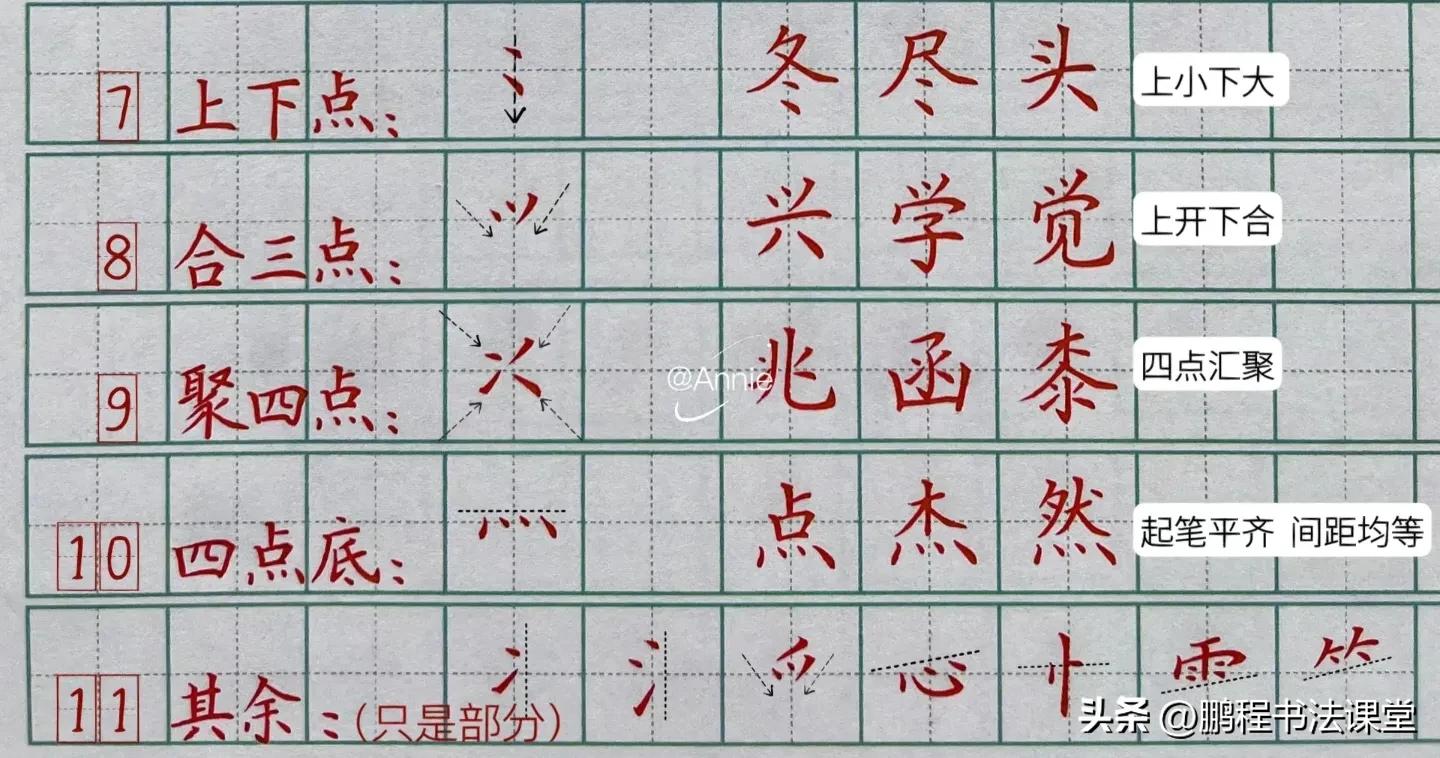 7 上下点： 冬 尽 头 上小下大
8 合三点： 兴 学 觉 上开下合
9 聚四点： @Annie 兆 函 桼 四点汇聚
10 四点底： 灬 点 杰 然 起笔平齐 间距均等
11 其余：（只是部分） 冫 氵 爫 心 忄 雨 ⺮
头条 @鹏程书法课堂